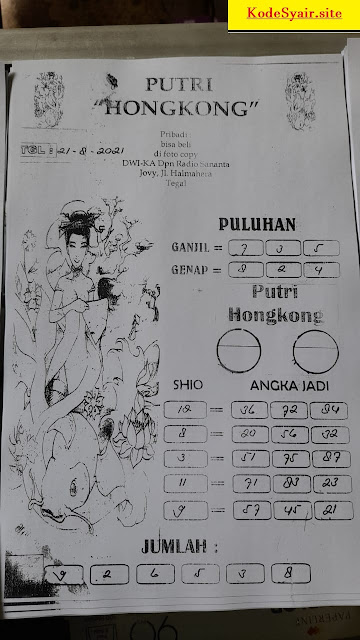 KodeSyair.site
PUTRI
"HONGKONG"
Pribadi
bisa beli
di foto copy
DWI-KA Dpn Radio Sananta
Jovy, Jl. Halmahera
Tegal
TGL : 21 - 8 - 2021
PULUHAN
GANJIL = 7 3 5
GENAP = 8 2 4
Putri
Hongkong
SHIO ANGKA JADI
12 = 36 72 84
8 = 20 56 32
3 = 51 75 87
11 = 71 83 23
9 = 57 45 21
JUMLAH :
9 2 6 5 3 8